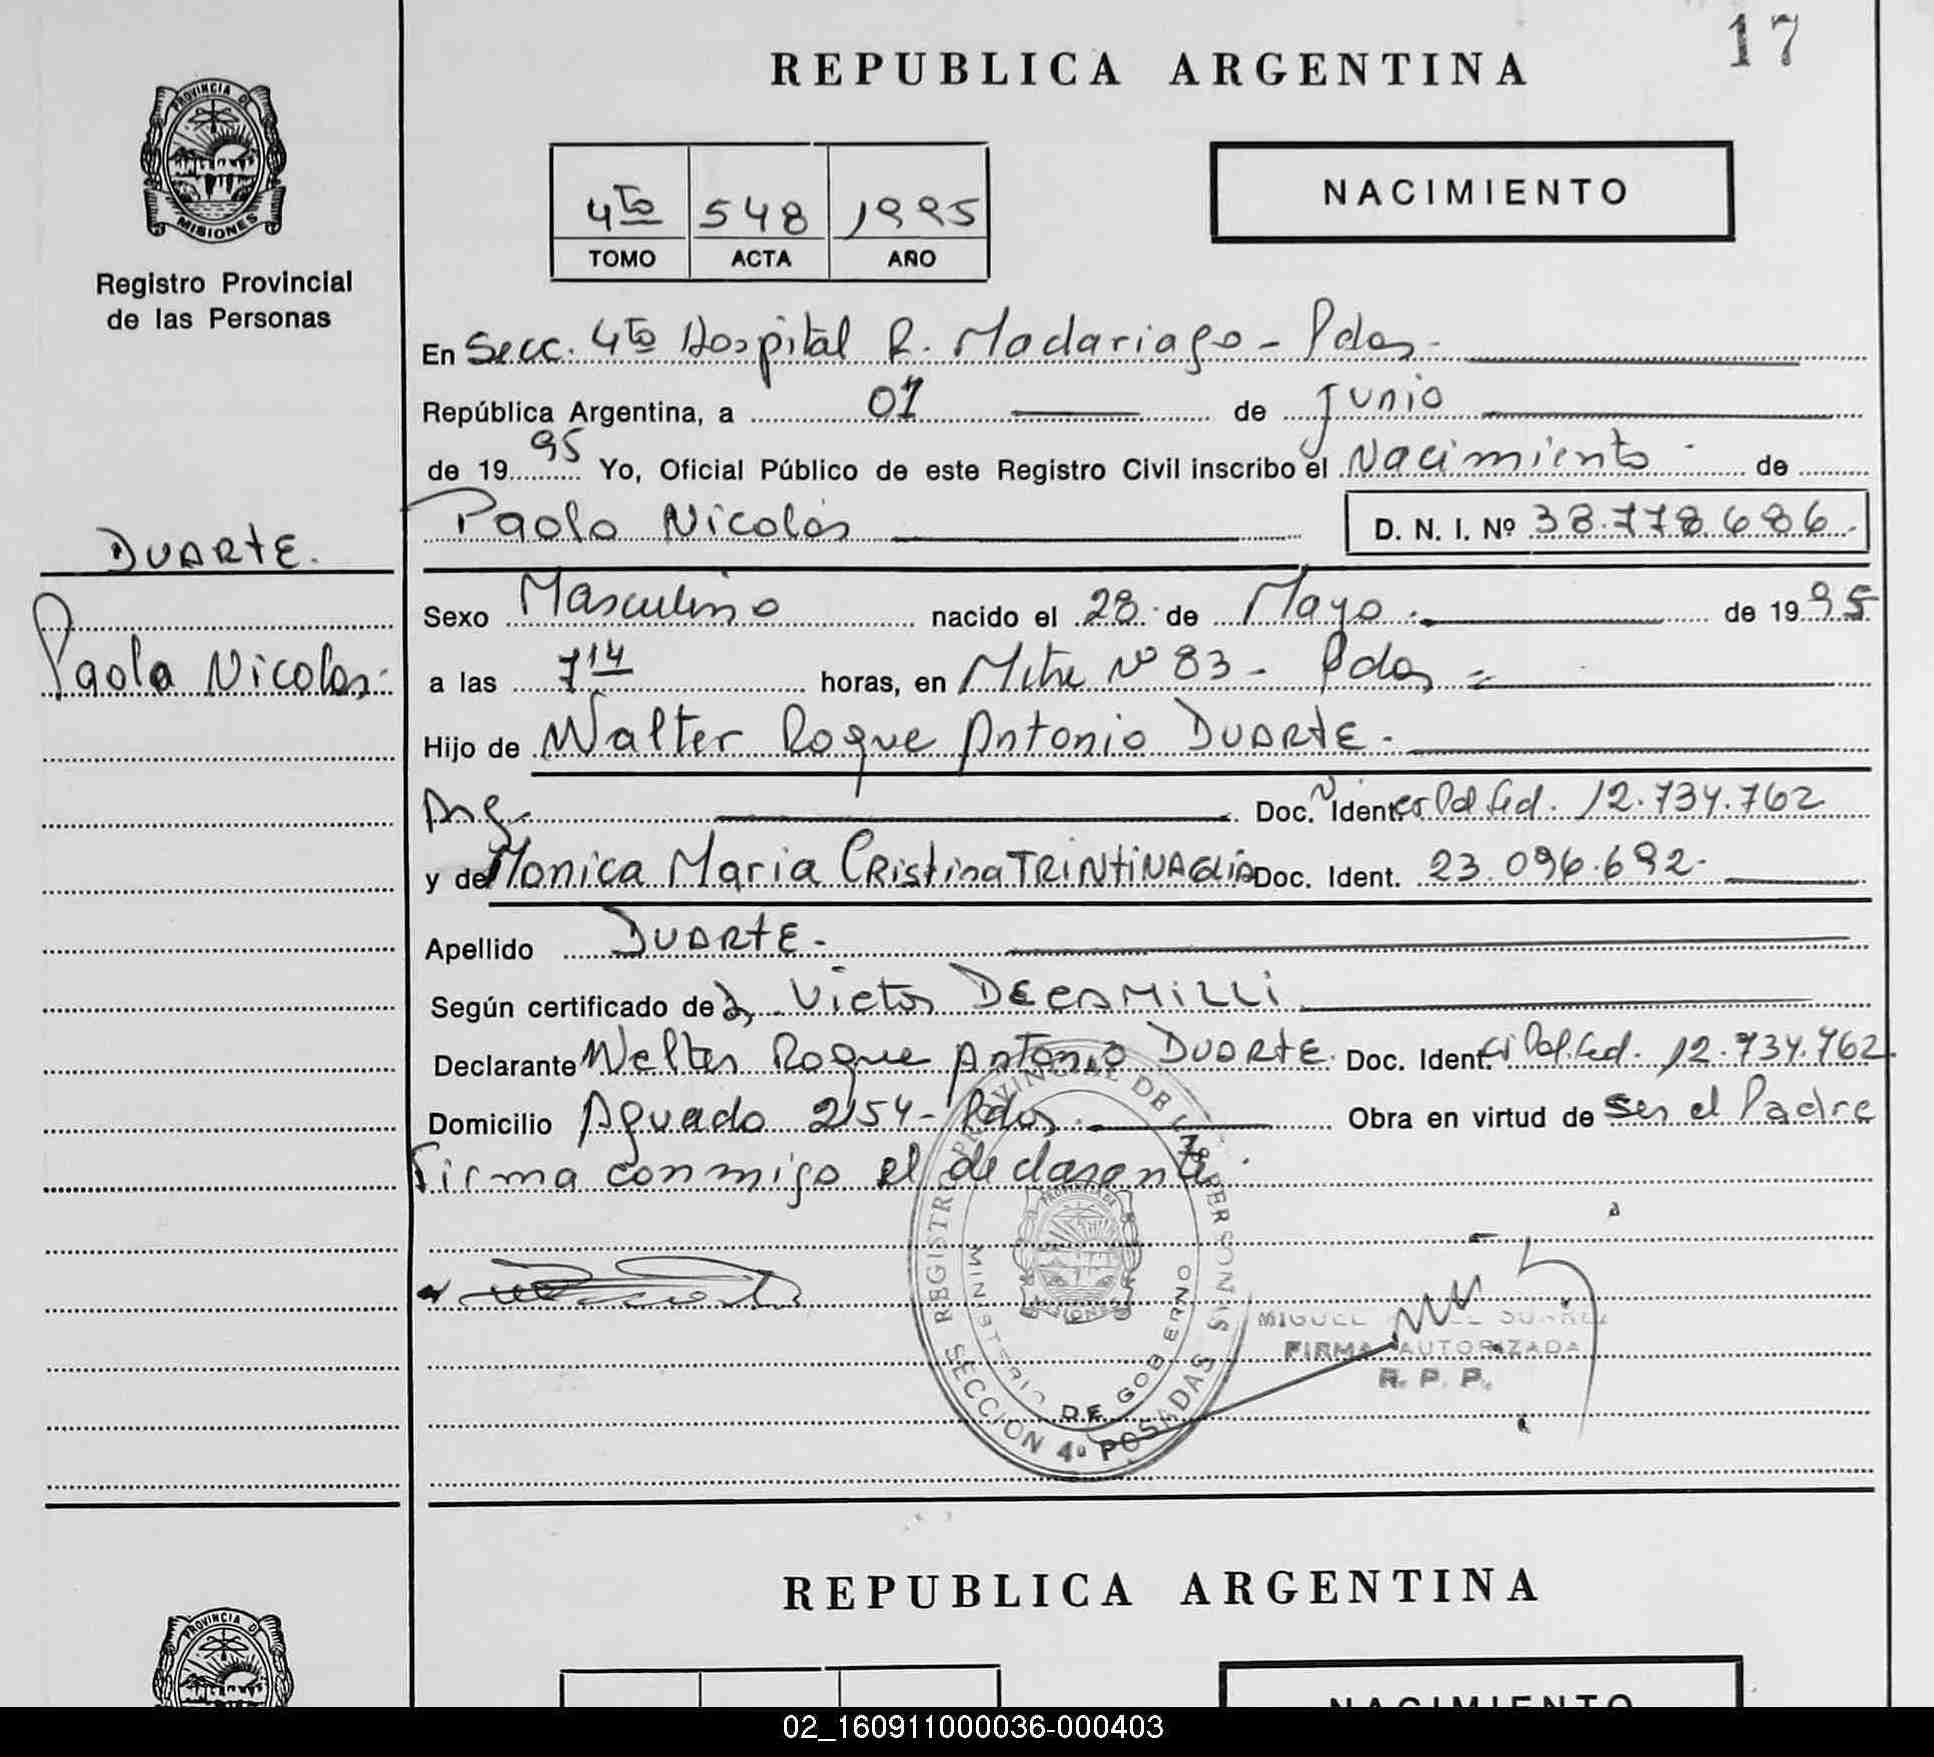 17
REPUBLICA ARGENTINA
PROVINCIA DE
MISIONES
Registro Provincial
de las Personas
4to 548 1995
TOMO ACTA AÑO
NACIMIENTO
En Secc. 4to Hospital R. Madariaga - Pdas.
República Argentina, a 01 de Junio
de 1995 Yo, Oficial Público de este Registro Civil inscribo el Nacimiento de
Paolo Nicolás D. N. I. Nº 38.778.686.-
DUARTE.
Paolo Nicolas.
Sexo Masculino nacido el 28 de Mayo de 1995
a las 7 14 horas, en Mitre Nº 83 - Pdas
Hijo de Walter Roque Antonio DUARTE.-
Arg. Doc. Ident. Pol Fed. 12.734.762
y de Monica Maria Cristina TRINTINAGLIA Doc. Ident. 23.096.692.-
Apellido DUARTE.-
Según certificado de Victor DECAMILLI
Declarante Walter Roque Antonio DUARTE. Doc. Ident. Ci Pol. Fed. 12.734.762
Domicilio Aguado 2154 - Pdas. Obra en virtud de ser el Padre
Firma conmigo el declarante.
REGISTRO PROVINCIAL DE LAS PERSONAS
PROVINCIA DE
MISIONES
MINISTERIO DE GOBIERNO
SECCION 4ª POSADAS
MIGUEL SUAREZ
FIRMA AUTORIZADA
R. P. P.
REPUBLICA ARGENTINA
PROVINCIA DE
NACIMIENTO
02_160911000036-000403